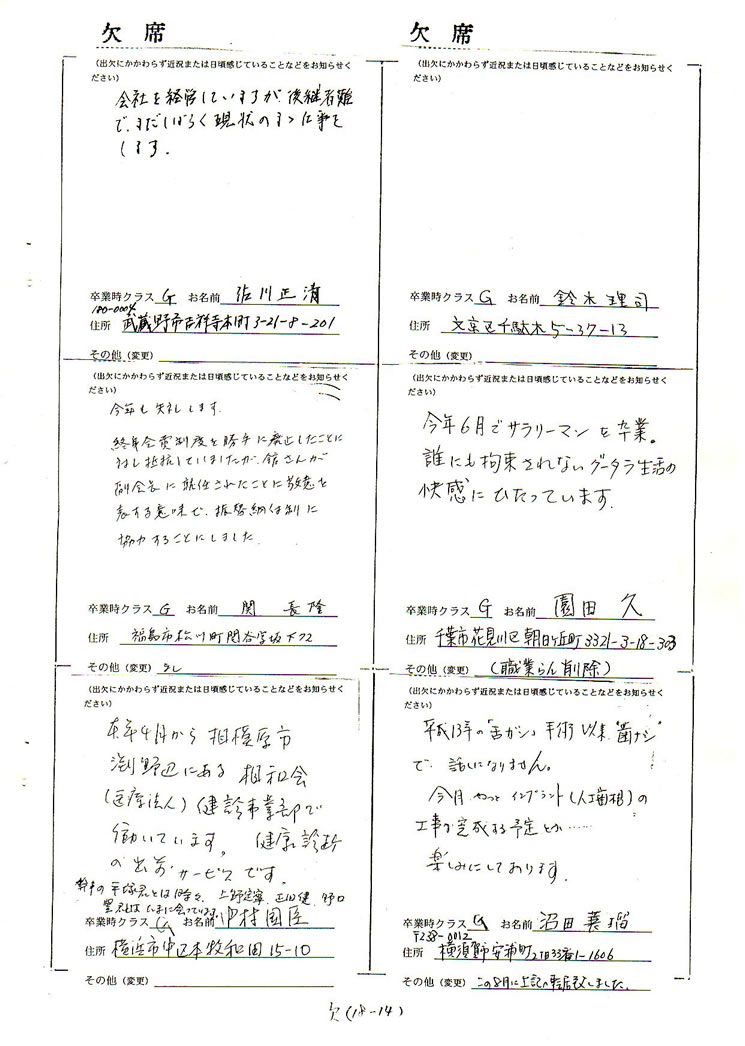 欠席
(出欠にかかわらず近況または日頃感じていることなどをお知らせく
ださい)
会社を経営していますが後継者難
で、まだしばらく現状のまゝ仕事を
します.
卒業時クラス G お名前 佐川正清
180-0004
住所 武蔵野市吉祥寺本町3-21-8-201
その他(変更)
欠席
(出欠にかかわらず近況または日頃感じていることなどをお知らせく
ださい)
卒業時クラス G お名前 鈴木理司
住所 文京区千駄木5-37-13
その他(変更)
(出欠にかかわらず近況または日頃感じていることなどをお知らせく
ださい)
今年も失礼します.
終年会費制度を勝手に廃止したことに
対し抵抗していましたが、舘さんが
副会長に就任されたことに敬意を
表する意味で、振替納付制に
協力することにしました.
卒業時クラス G お名前 関 長隆
住所 福島市松川町関谷字坂下72
その他(変更) なし
(出欠にかかわらず近況または日頃感じていることなどをお知らせく
ださい)
今年6月でサラリーマンを卒業。
誰にも拘束されないグータラ生活の
快感にひたっています.
卒業時クラス G お名前 園田 久
住所 千葉市花見川区朝日ヶ丘町3321-3-18-303
その他(変更) (職業らん削除)
(出欠にかかわらず近況または日頃感じていることなどをお知らせく
ださい)
本年4月から相模原市
渕野辺にある相和会
(医療法人)健診事業部で
働いています。 健康診断
の出前サービスです。
平塚君とは時々、上野定寧、正田健、
卒業時クラス G お名前 中村国臣
住所 横浜市中区本牧和田15-10
その他(変更)
(出欠にかかわらず近況または日頃感じていることなどをお知らせく
ださい)
平成13年の「舌ガン」手術以来"歯ナシ"
で、話になりません。
今月やっとインプラント(人工歯根)の
工事が完成する予定とか……
楽しみにしております.
卒業時クラス G お名前 沼田
〒238-0012
住所 横須賀市安浦町2丁目33番1-1606
その他(変更) この8月に上記へ転居致しました.
欠(18-14)